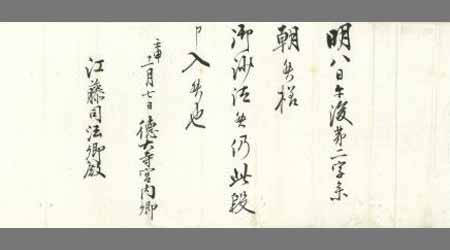 明八日午後第二字参
朝候様
御沙汰候仍此段
申入候也
壬申二月七日 徳大寺宮内卿
江藤司法卿殿